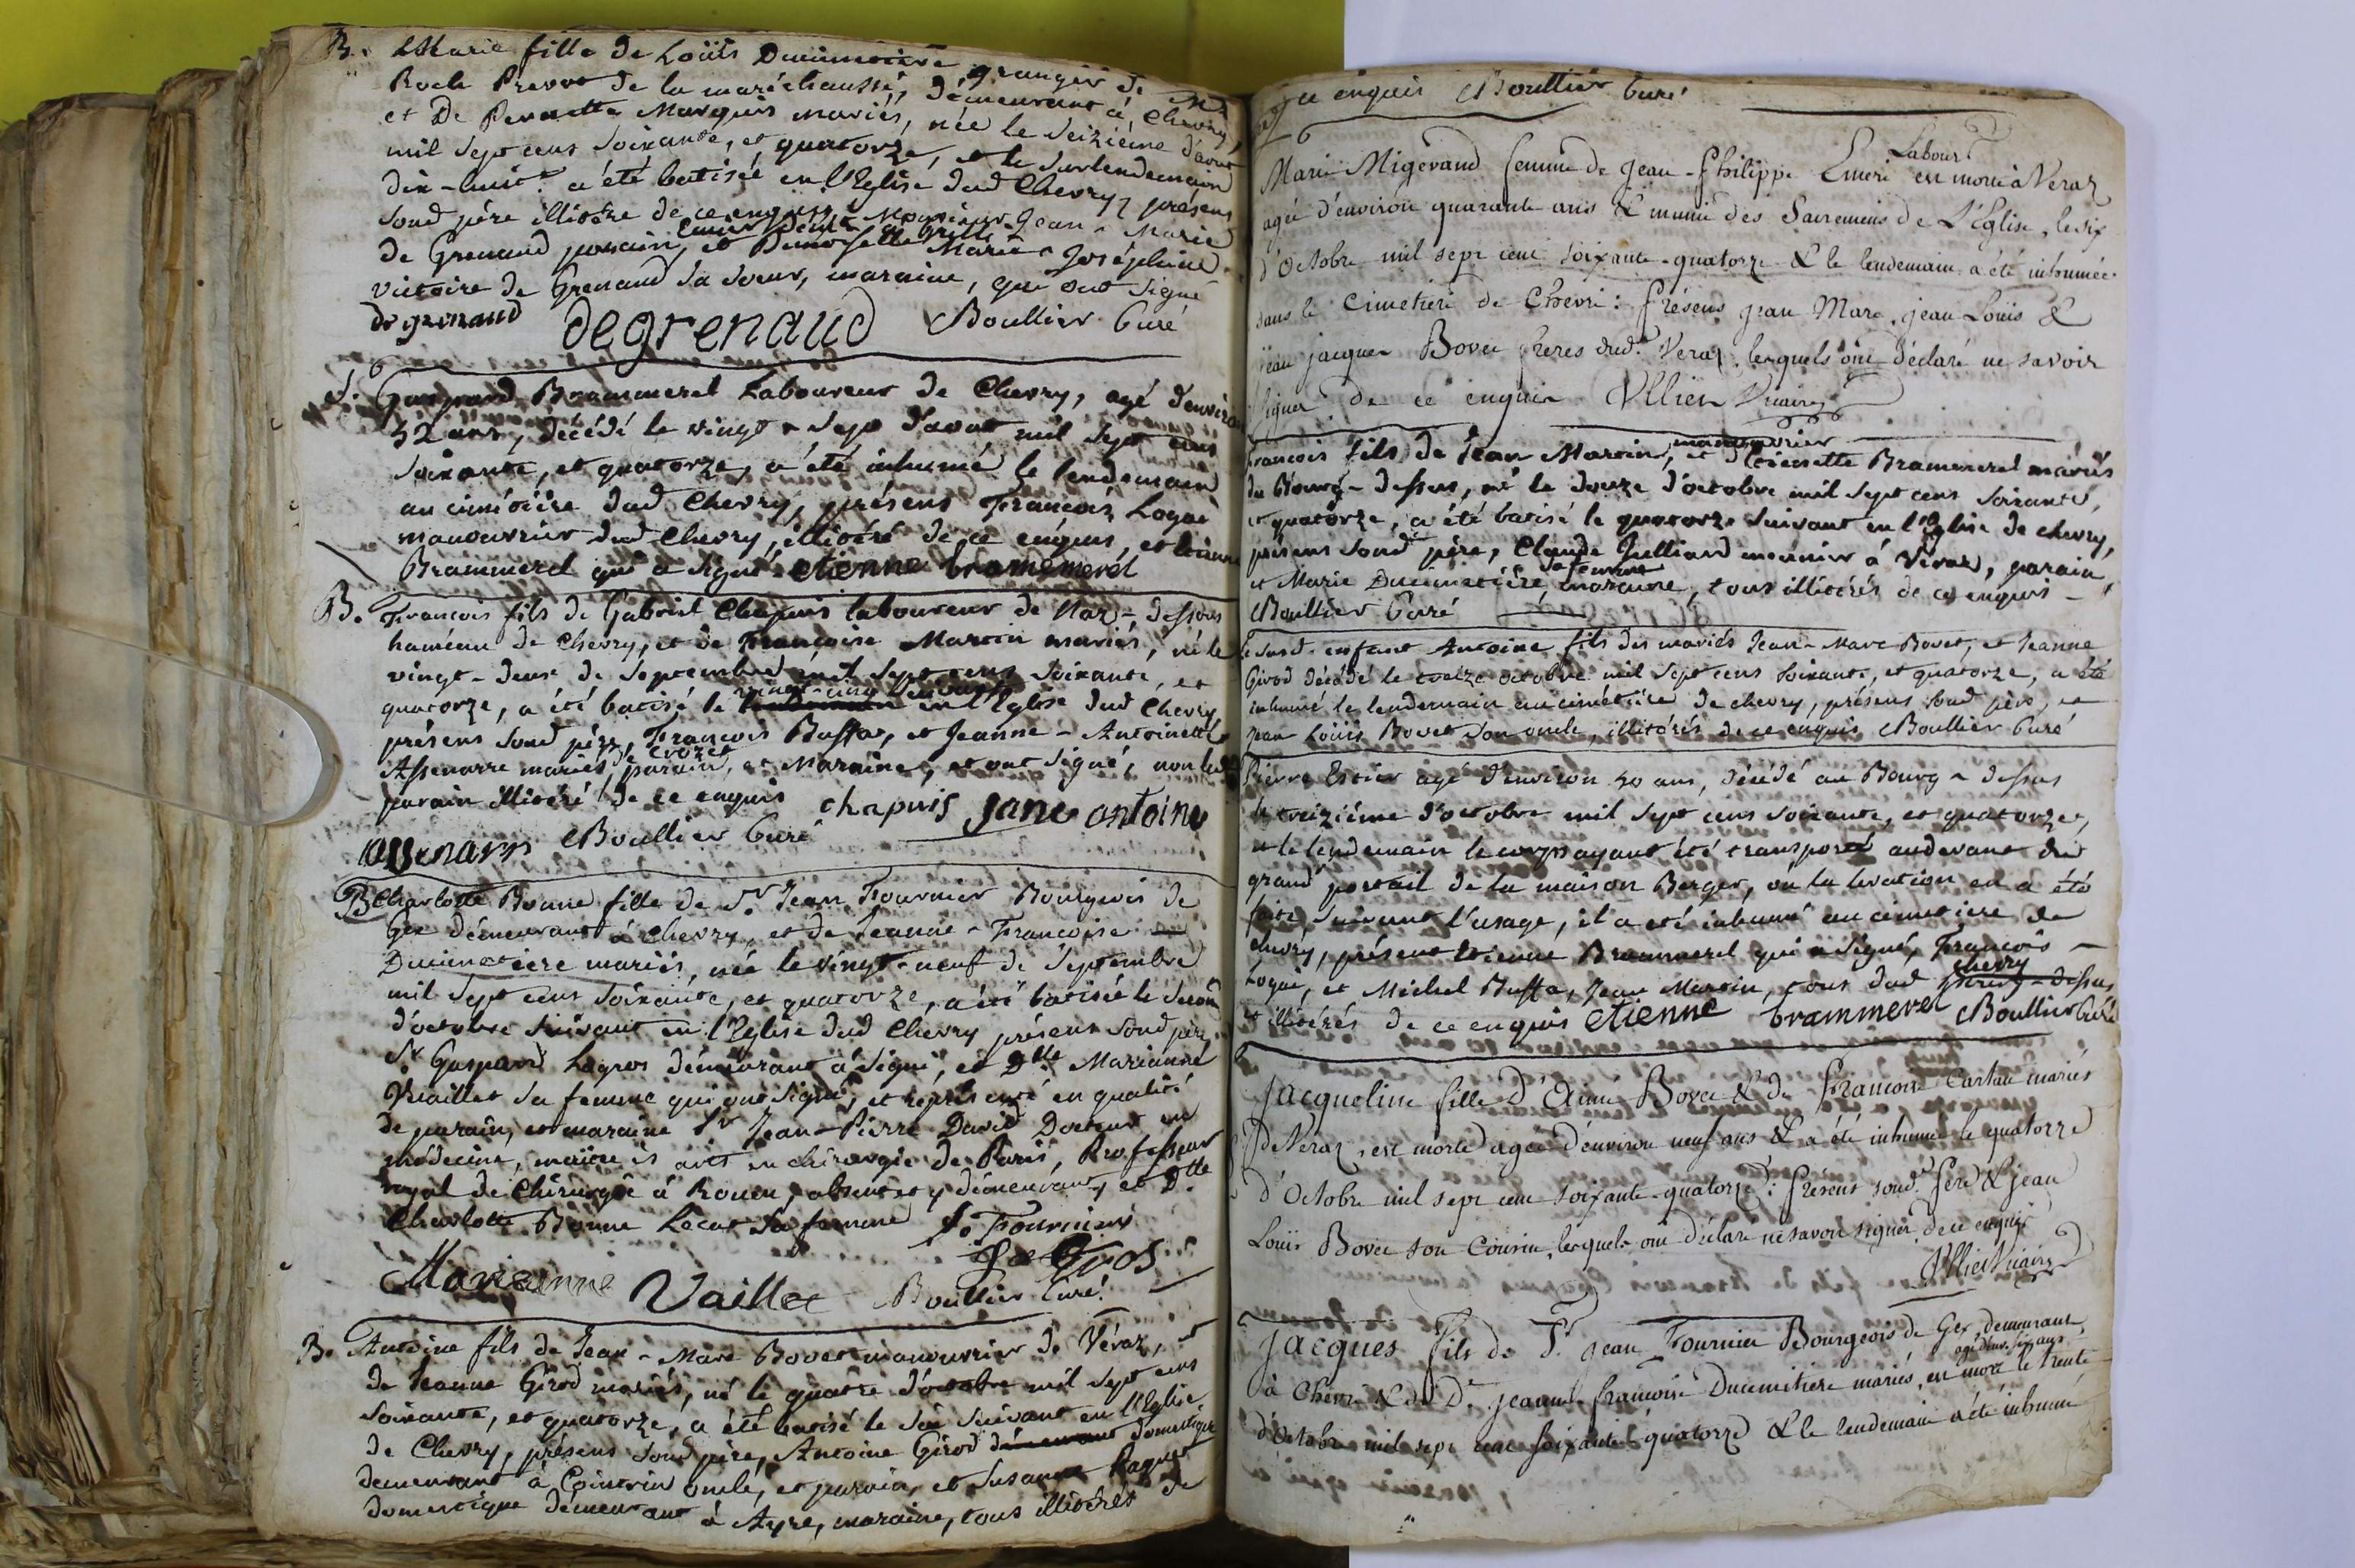 B. Marie fille de Loüis Ducimetière, granger de Mr
Roch Prevot de la maréchaussé, démeurant à Chevry,
et De Pernette Marquis mariés, née le seizième d'aout
mil sept cens soixante, et quatorze, et le surlendemain
dix-huit a été batisée en l'Eglise dud Chevry, présens
soud père illitéré de ce enquis, Monsieur Jean-Marie
de Grenaud parain, et Demoiselle Marie-Joséphine
victoire de Grenaud sa soeur, maraine, qui ont signé
de grenaud degrenaud Boullier Curé
S. Gaspard Brammerel Laboureur de Chevry, agé d'environ
52 ans, décédé le vingt-sept d'aout mil sept cens
soixante, et quatorze, a été inhumé le lendemain
au cimétière dud Chevry, présens François Logué
manouvrier dud Chevry, illitéré de ce enquis, et Etienne
Brammerel qui a signé etienne bramemerel
B. François fils de Gabriel Chapuis laboureur de Naz-dessous
haméau de Chevry, et de Françoise Martin mariés, né le
vingt-deux de Septembre mil sept cens soixante, et
quatorze, a été batisé le vingt-cinq suivant en l'Eglise dud Chevry,
présens soud père, François Buffa, et Jeanne-Antoinette
Assenarre mariés de Crozet parain, et Maraine, et ont signé, non led
parain illitéré de ce enquis chapuis jane antoine
assenarre Boullier Curé
B. Charlotte Bonne fille de Sr. Jean Fournier Bourgeois de
Gex démeurant à Chevry, et de Jeanne-Françoise
Ducimetière mariés, née le vingt-neuf de Septembre
mil sept cens soixante, et quatorze, a été batisée le second
d'octobre suivant en l'Eglise dud Chevry présens soud père,
Sr Gaspard Legros démeurant à Signi, et Dlle Marianne
Vaillet sa femme qui ont signé, et représenté en qualité
de parain, et maraine Sr Jean-Pierre David Docteur en
médecine, maitre es arts en chirurgie de Paris, Professeur
royal de Chirurgie à Rouen, absent et y démeurant, et Dlle
Charlotte Bonne Lecat sa femme J. Fournier
Le Gros
Marianne Vaillet Boullier Curé
B. Antoine fils de Jean-Marc Bovet manouvrier de Véraz, et
de Jeanne Girod mariés, né le quatre d'octobre mil sept cens
soixante, et quatorze, a été batisé le six suivant en l'Eglise
de Chevry, présens soud père, Antoine Girod démeurant domestique
demeurant à Cointrin oncle, et parain, et Susanne Raquet
domestique démeurant à Ayre, maraine, tous illitérés de
ce enquis Boullier Curé
Marie Migerand femme de Jean-Philippe Emeri Labour. est morte à Veraz
agée d'environ quarante ans & munie des Sacremens de L'Eglise, le six
d'Octobre mil sept cent soixante-quatorze & le lendemain a été inhumée
dans le Cimetiere de Chevri: Présens Jean Marc, jean Loüis &
jean jacques Bovet freres dud. Veraz, lesquels ont déclaré ne savoir
signer de ce enquis Ullien Vicaire
François fils de Jean Martin, manouvrier et d'Etiennette Brammerel mariés
du Bourg-dessus, né le douze d'octobre mil sept cens soixante,
et quatorze, a été batisé le quatorze suivant en l'Eglise de chevry,
présens soud père, Claude Julliard meunier à Véraz, parain,
et Marie Ducimetière, sa femme maraine, tous illitérés de ce enquis
Boullier Curé
Le susd. enfant Antoine fils des mariés Jean-Marc Bovet, et Jeanne
Girod décédé le treize octobre mil sept cens soixante, et quatorze, a été
inhumé le lendemain au cimétière de chevry, présens soud père, et
Jean Loüis Bovet son oncle, illitérés de ce enquis Boullier Curé
Pierre Estier agé d'environ 50 ans, décédé au Bourg-dessus
le treizième d'octobre mil sept cens soixante, et quatorze,
et le lendemain le corps ayant été transporté audevant du
grand portail de la maison Berger, où la levation en a été
faite, suivant l'usage, il a été inhumé au cimetière de
chevry, présent Etienne Brammerel qui a signé, François
Logué, et Michel Buffa, Jean Martin, tous dud chevry Bourg-dessus
et illitérés de ce enquis etienne brammerel Boullier Curé
Jacqueline fille d'Aimé Bovet & de Françoise Cartau mariés
de Veraz, est morte agée d'environ neuf ans & a été inhumée le quatorze
d'Octobre mil sept cent soixante-quatorze: Présens soud. Père & jean
Louis Bovet son Cousin, lesquels ont déclaré ne savoir signer de ce enquis
Ullien Vicaire
Jacques fils de Sr. jean Fournier Bourgeois de Gex demeurant
à Chevri & de De. jeanne françoise Ducimetiere mariés, agé d'env. six ans est mort le trente
d'Octobre mil sept cent soixante-quatorze & le lendemain a été inhumé